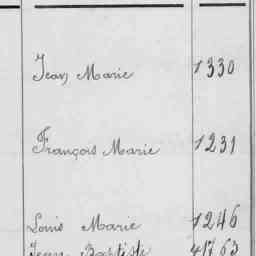 Jean Marie 1330
François Marie 1231
Louis Marie 1246
Jean Baptiste 41763